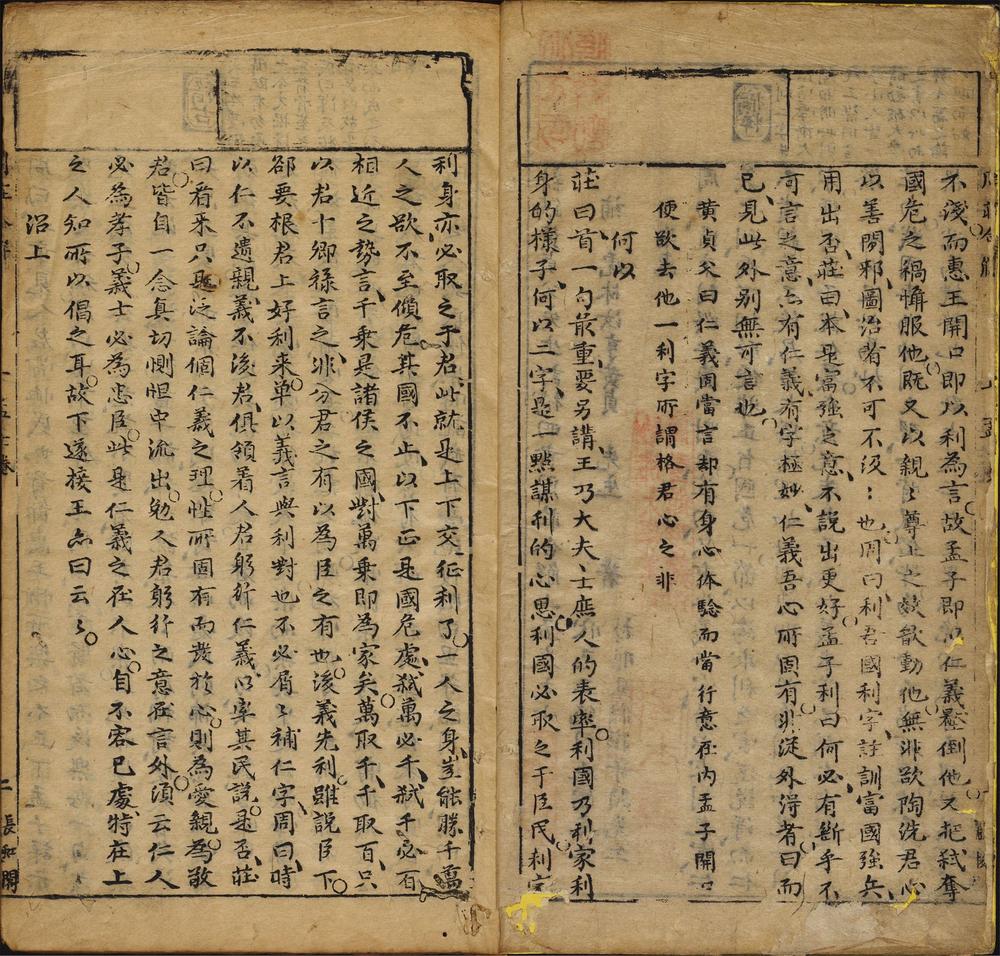 不淺而惠王開口即以利為言故孟子即以仁義壓倒他又把弒奪
國危之禍慴服他既又以親〻尊上之效歆動他無非欲陶洗君心
以善閉邪圖治者不可不沒〻也周曰利吾國利字註訓富國強兵
用出否莊曰本是富強之意不說出更好孟子利曰何必有斷乎不
可言之意亦有仁義有字極妙仁義吾心所固有非從外得者曰而
已見此外別無可言也
黃貞父曰仁義固當言却有身心体驗而當行意在內孟子開口
便欲去他一利字所謂格君心之非
何以
莊曰首一句最重要另講王乃大夫士庶人的表率利國乃利家利
身的樣子何以二字是一點謀利的心思利國必取之于臣民利家
利身亦必取之于君此就是上下交征利了一人之身豈能勝千萬
人之欲不至傾危其國不止以下正是國危處弒萬必千弒千必百
相近之勢言千乘是諸侯之國對萬乘即為家矣萬取千千取百只
以君十卿祿言之非分君之有以為臣之有也後義先利雖說臣下
卻要根君上好利來单以義言與利對也不必屑〻補仁字周曰時
以仁不遺親義不後君俱領着人君躬行仁義以率其民說是否莊
曰看来只是泛論個仁義之理性所固有而發於心則為愛親為敬
君皆自一念真切惻怛中流出勉人君躬行之意在言外須云仁人
必為孝子義士必為忠臣此是仁義之在人心自不容已處特在上
之人知所以倡之耳故下遂接王亦曰云〻
沼上